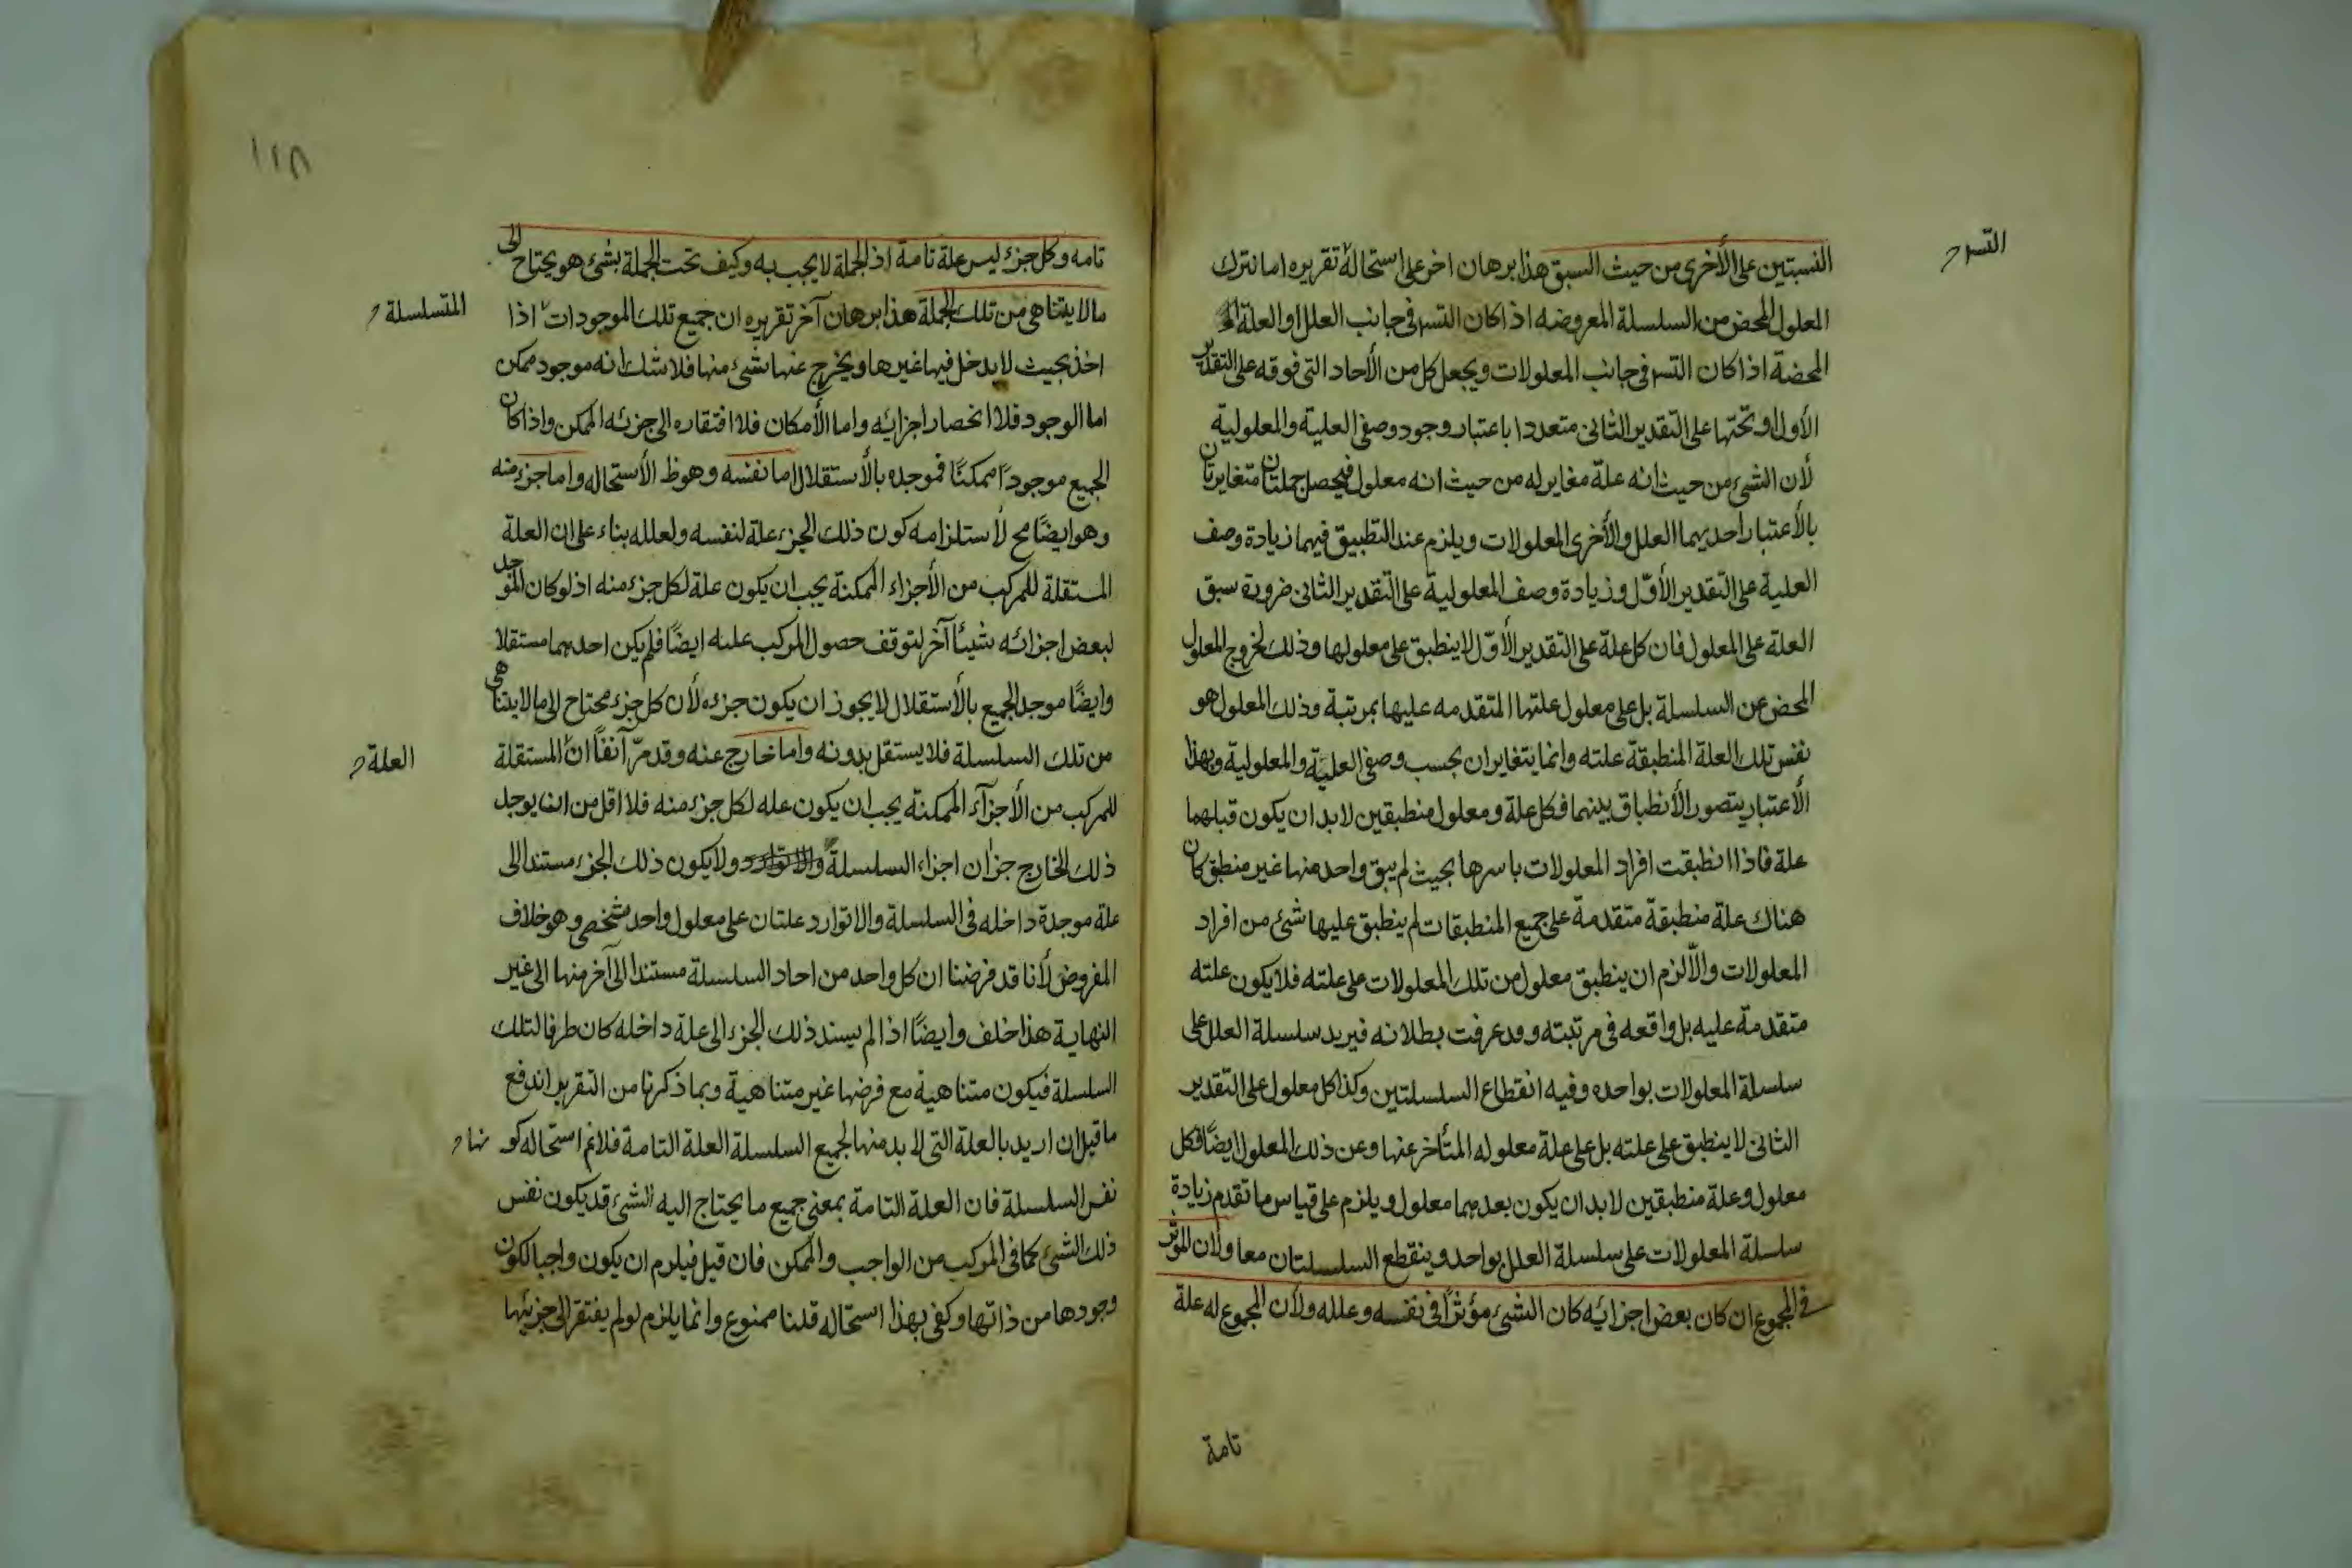 النسبتين على الأخرى من حيث السبق هذا برهان اخر على استحالة تقريره اما نترك
التسـ
المعلول المحض من السلسلة المعروضه اذا كان التسـ في جانب العلل او العلة
المحضة اذا كان التسـ في جانب المعلولات ويجعل كل من الأحاد التى فوقه على التقدير
الأول او تحتها على التقدير الثانى متعددا باعتبار وجود وصفى العلية والمعلولية
لأن الشئ من حيث انه علة مغاير له من حيث انه معلول فيحصل جملتان متغايرتان
بالأعتبار احديهما العلل والأخرى المعلولات ويلزم عند التطبيق فيهما زيادة وصف
العلية على التقدير الأول وزيادة وصف المعلولية على التقدير الثانى ضرورة سبق
العلة على المعلول فان كل علة على التقدير الأول لا ينطبق على معلولها وذلك لخروج المعلول
المحض عن السلسلة بل على معلول علتها المتقدمه عليها بمرتبة وذلك المعلول هو
نفس تلك العلة المنطبقة علته وانما يتغايران بحسب وصفى العلية والمعلولية وبهذا
الأعتبار يتصور الأنطباق بينهما فكل علة ومعلول منطبقين لابد ان يكون قبلهما
علة فاذا انطبقت افراد المعلولات باسرها بحيث لم يبق واحد منها غير منطبق كان
هناك علة منطبقة متقدمة على جميع المنطبقات لم ينطبق عليها شئ من افراد
المعلولات والّا لزم ان ينطبق معلول من تلك المعلولات على علته فلا يكون علته
متقدمة عليه بل واقعه فى مرتبته وقد عرفت بطلانه فيريد سلسلة العلل على
سلسلة المعلولات بواحده وفيه انقطاع السلسلتين وكذا كل معلول على التقدير
الثانى لا ينطبق على علته بل على علة معلوله المتأخر عنها وعن ذلك المعلول ايضًا فكل
معلول وعلة منطبقين لابد ان يكون بعدهما معلول ويلزم على قياس ما تقدم زيادة
سلسلة المعلولات على سلسلة العلل بواحد وينقطع السلسلتان معا ولأن المؤثر
في المجموع ان كان بعض اجزائه كان الشئ مؤثرًا فى نفسه وعلله ولأن المجموع له علة
تامة
١٢٨
تامه وكل جزء ليس علة تامة اذ الجملة لا يجب به وكيف تحت الجملة بشئ هو يحتاج الى
ما لا يتناهى من تلك الجملة هذا برهان آخر تقريره ان جميع تلك الموجودات اذا
المتسلسلة
اخذ بحيث لا يدخل فيها غيرها ويخرج عنها شئ منها فلا شك انه موجود ممكن
اما الوجود فلا انحصار اجزائه واما الأمكان فلا افتقاره الى جزئه الممكن واذا كان
الجميع موجودًا ممكنًا فموجده بالأستقلال اما نفسه وهو ظ الأستحاله واما جزء منه
وهو ايضًا مح لأستلزامه كون ذلك الجزء علة لنفسه ولعلله بناء على ان العلة
المستقلة للمركب من الأجزاء الممكنة يجب ان يكون علة لكل جزء منه اذ لو كان الموجد
لبعض اجزائه شيئًا آخر لتوقف حصول المركب عليه ايضًا فلم يكن احدهما مستقلا
وايضًا موجد الجميع بالأستقلال لا يجوز ان يكون جزءه لأن كل جزء محتاج الى ما لا يتناهى
من تلك السلسلة فلا يستقل بدونه واما خارج عنه وقد مرّ آنفًا ان المستقلة
العلة
للمركب من الأجزآء الممكنة يجب ان يكون عله لكل جزء منه فلا اقل من ان يوجد
ذلك الخارج جزأ من اجزاء السلسلة ولا يكون ذلك الجزء مستندا الى
علة موجدة داخله فى السلسلة والا توارد علتان على معلول واحد شخصى وهو خلاف
المفروض لأنا قد فرضنا ان كل واحد من احاد السلسلة مستندا الى آخر منها الى غير
النهاية هذا خلف وايضًا اذا لم يسند ذلك الجزء الى علة داخله كان طرفا لتلك
السلسلة فيكون متناهية مع فرضها غير متناهية وبما ذكرنا من التقرير اندفع
ما قيل ان اريد بالعلة التى لا بد منها لجميع السلسلة العلة التامة فلا نم استحاله كو نها
نفس السلسلة فان العلة التامة بمعنى جميع ما يحتاج اليه الشئ قد يكون نفس
ذلك الشئ كما فى المركب من الواجب والممكن فان قيل فيلزم ان يكون واجبا لكون
وجودها من ذاتها وكفى بهذا استحاله قلنا ممنوع وانما يلزم لو لم يفتقر الى جزئها